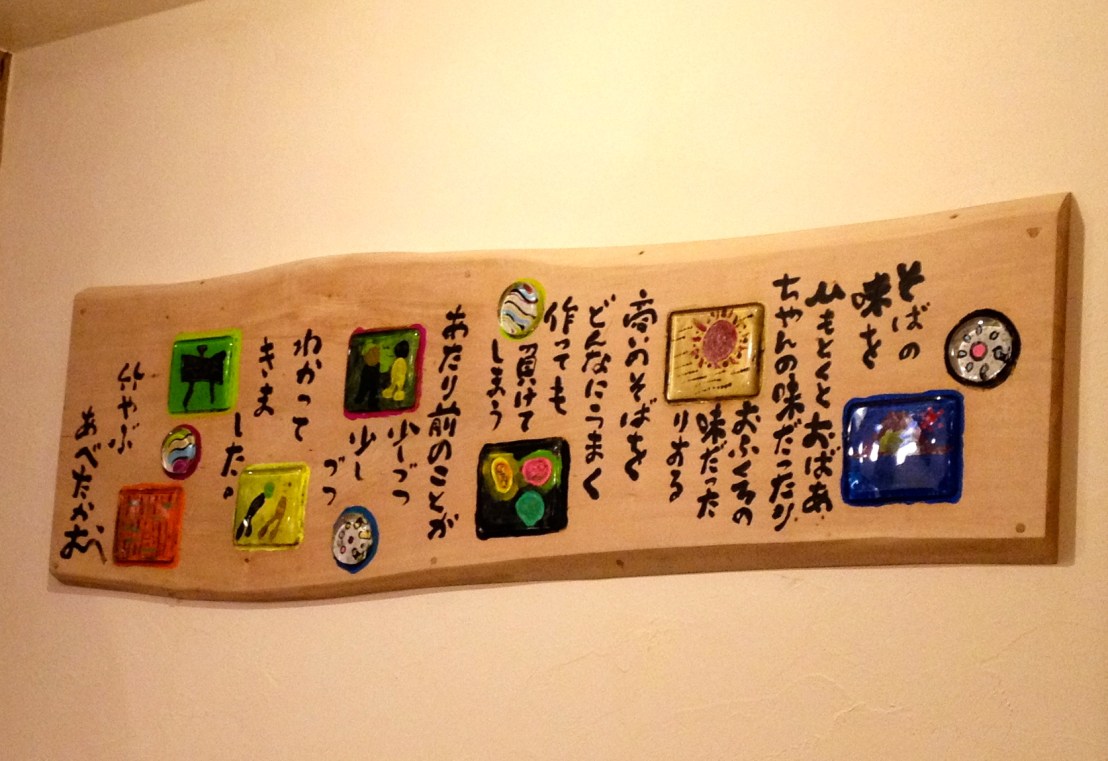 そばの
味を
ひもとくとおばあ
ちゃんの味だったり
おふくろの
味だった
りする
商いのそばを
どんなにうまく
作っても
負けて
しまう
あたり前のことが
少しづつ
少し
づつ
わかって
きま
した。
竹やぶ
あべたかお